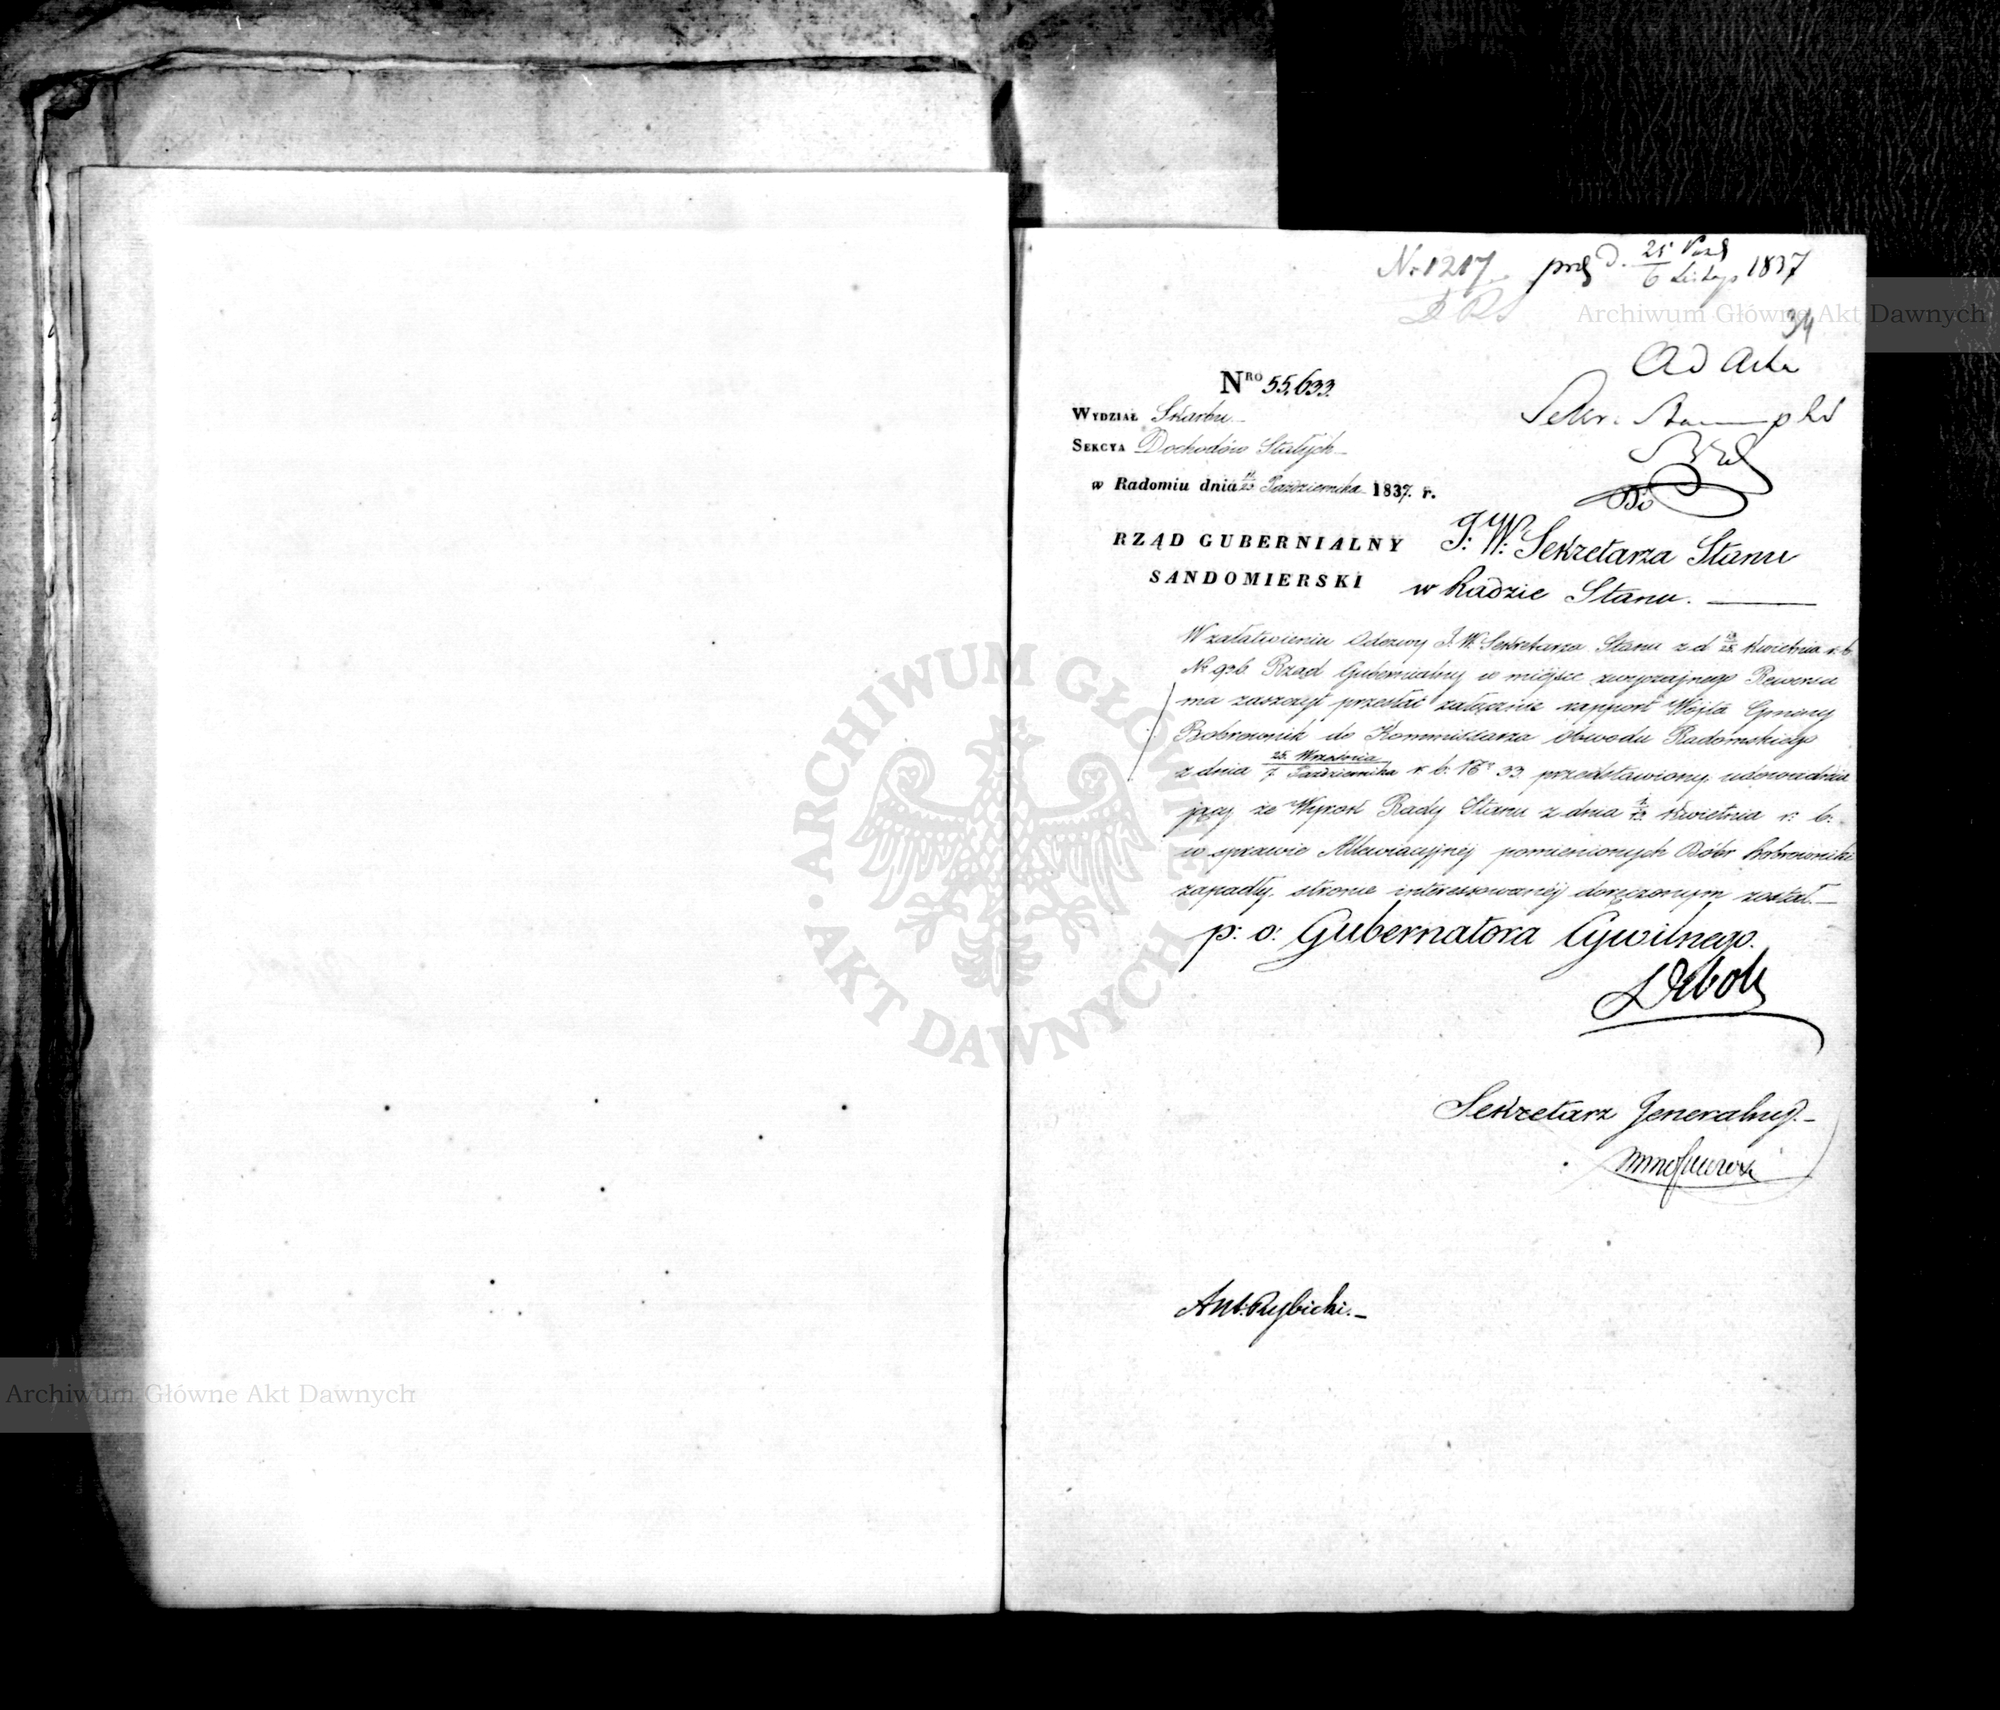 N: 1217. prz d. 25 Paźd / 6 Listop 1837
34
Ad Acta
Sekr. Stanu
NRO 55,633.
WYDZIAŁ Skarbu
SEKCYA Dochodów Stałych
w Radomiu dnia Października 1837. r.
Do
RZĄD GUBERNIALNY
SANDOMIERSKI
J: W: Sekretarza Stanu
w Radzie Stanu.
W załatwieniu Odezwy J. W. Sekretarza Stanu z d Kwietnia r. b.
Nr 936 Rząd Gubernialny w miejsce zwyczajnego Rewersu
ma zaszczyt przesłać załącznie rapport Wójta Gminy
Bobrownik do Kommissarza Obwodu Radomskiego
z dnia 25. Września / 7. Października r. b. Nr 33 przedstawiony, udowadnia
jący że Wyrok Rady Stanu z dnia Kwietnia r: b:
w sprawie Allewiacyjnéj pomienionych Dóbr Bobrowniki
zapadły, stronie interessowanéj doręczonym został.
p: o: Gubernatora Cywilnego.
Sekretarz Jeneralny.
Ant. Rybicki.
Archiwum Główne Akt Dawnych
ARCHIWUM GŁÓWNE AKT DAWNYCH
Archiwum Główne Akt Dawnych